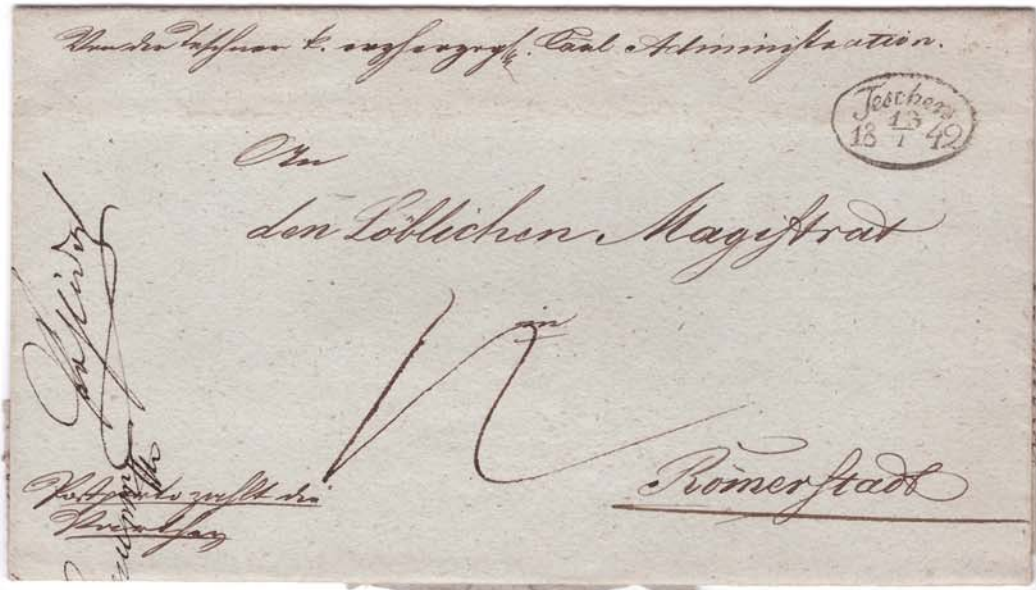 Von der Teschner k. erzherzogl. Carl Administration.
Teschen
13
18 1 42
An
den Löblichen Magistrat
in
Römerstadt
Postporto zahlt die
Parthey